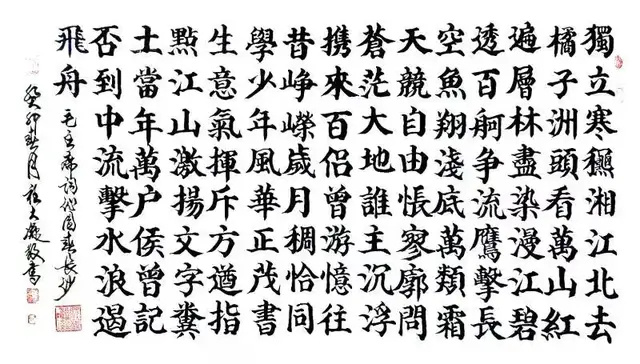 獨立寒穐湘江北去
橘子洲頭看萬山紅
遍層林盡染漫江碧
透百舸争流鷹擊長
空魚翔淺底萬類霜
天競自由悵寥廓問
蒼茫大地誰主沉浮
携來百侣曾游憶往
昔崢嶸歲月稠恰同
學少年風華正茂書
生意氣揮斥方遒指
點江山激揚文字糞
土當年萬户侯曾記
否到中流擊水浪遏
飛舟
毛主席词沁园春長沙
癸卯春月敬書